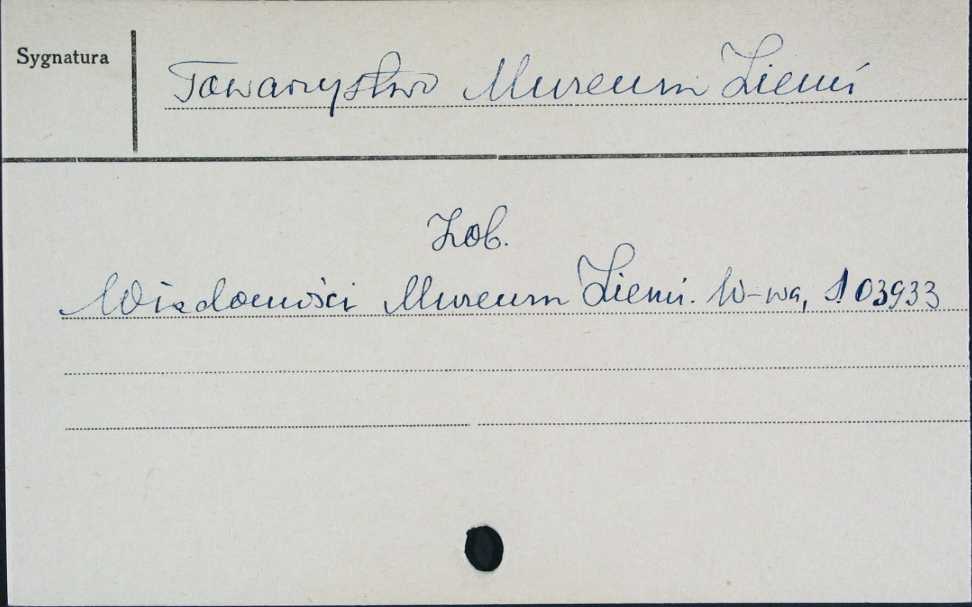 Sygnatura
Towarzystwo Muzeum Ziemi
Zob.
Wiadomości Muzeum Ziemi. W-wa, 1. 03933